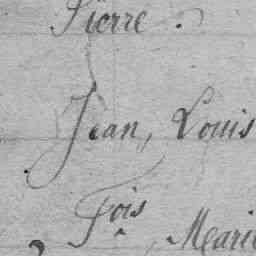 Pierre.
Jean, Louis
Fois, Marie